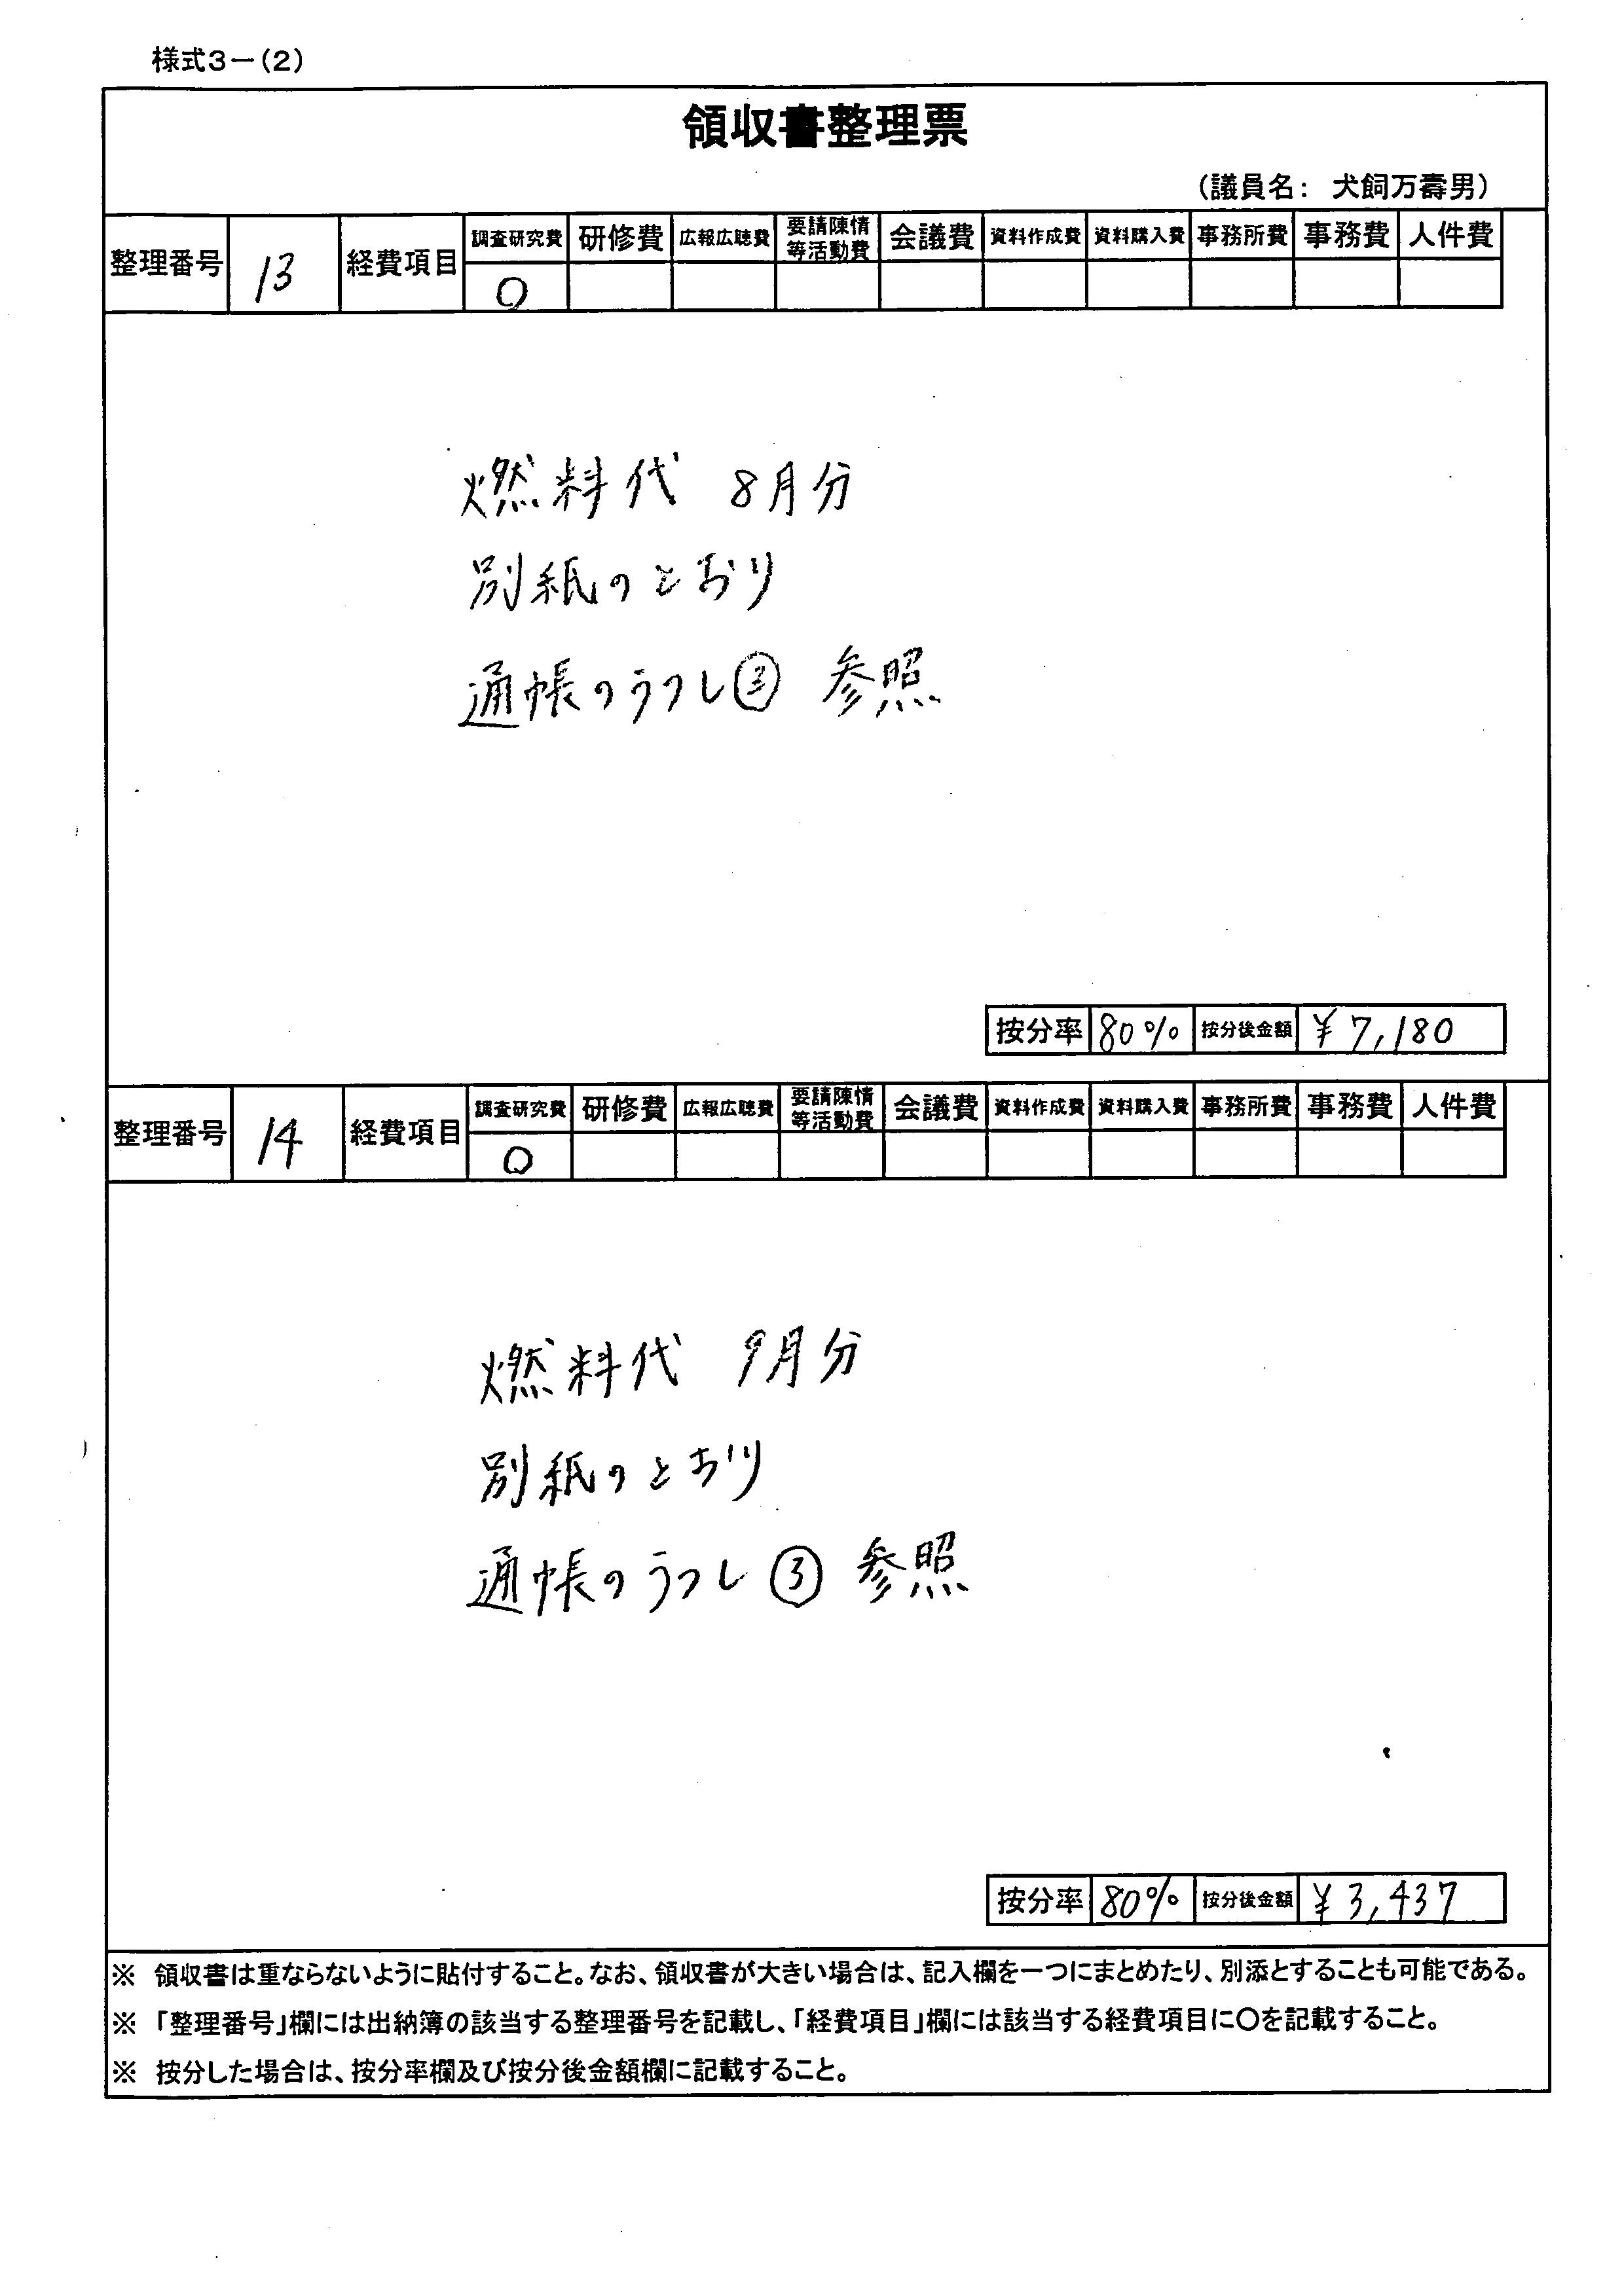 様式3－(2)
領収書整理票
(議員名： 犬飼万壽男)
整理番号 13 経費項目 調査研究費 研修費 広報広聴費 要請陳情等活動費 会議費 資料作成費 資料購入費 事務所費 事務費 人件費
○
燃料代 8月分
別紙のとおり
通帳のうつし 参照
按分率 80% 按分後金額 ¥7,180
整理番号 14 経費項目 調査研究費 研修費 広報広聴費 要請陳情等活動費 会議費 資料作成費 資料購入費 事務所費 事務費 人件費
○
燃料代 9月分
別紙のとおり
通帳のうつし③ 参照
按分率 80% 按分後金額 ¥3,437
※ 領収書は重ならないように貼付すること。なお、領収書が大きい場合は、記入欄を一つにまとめたり、別添とすることも可能である。
※ 「整理番号」欄には出納簿の該当する整理番号を記載し、「経費項目」欄には該当する経費項目に○を記載すること。
※ 按分した場合は、按分率欄及び按分後金額欄に記載すること。